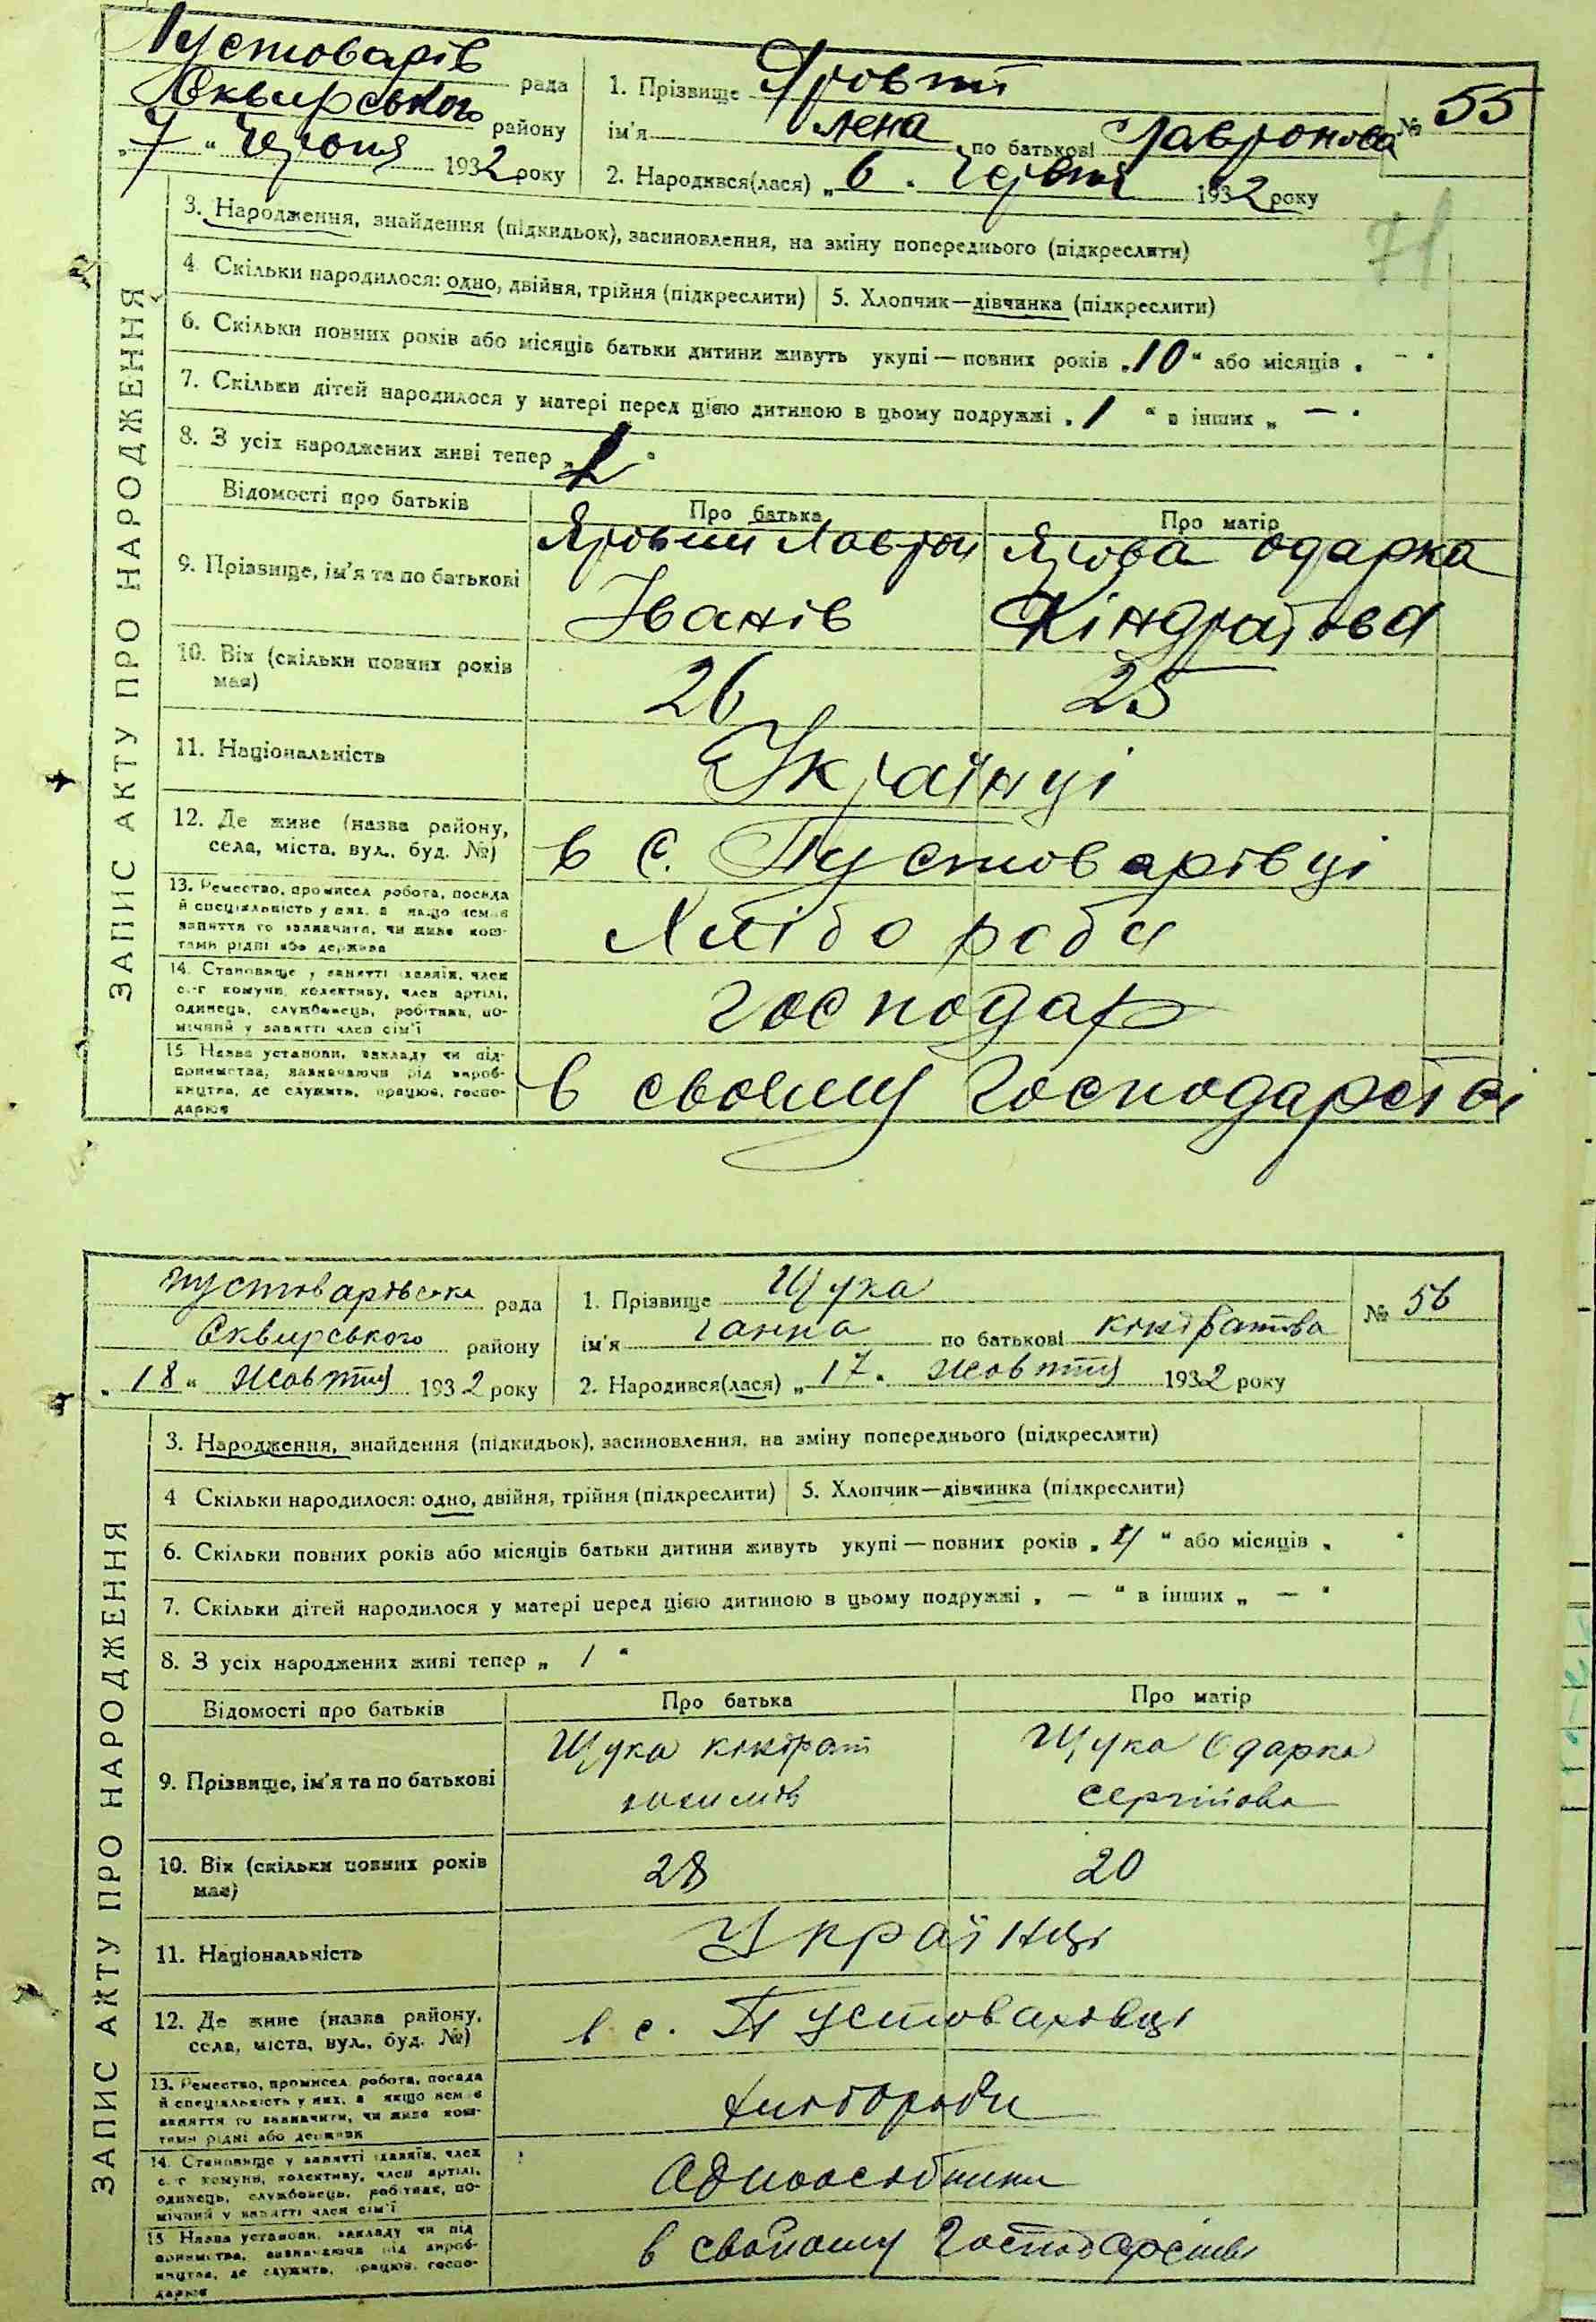 Пустоварів рада
Сквирського району
„7“ Червня 1932 року
1. Прізвище
ім'я Олена по батькові Лавронова
№ 55
2. Народився(лася) „6“ Червня 1932 року
71
ЗАПИС АКТУ ПРО НАРОДЖЕННЯ
3. Народження, знайдення (підкидьок), засиновлення, на зміну попереднього (підкреслити)
4. Скільки народилося: одно, двійня, трійня (підкреслити) 5. Хлопчик—дівчинка (підкреслити)
6. Скільки повних років або місяців батьки дитини живуть укупі — повних років „10“ або місяців „ — “
7. Скільки дітей народилося у матері перед цією дитиною в цьому подружжі „1“ в інших „ — “
8. З усіх народжених живі тепер „2“
Відомості про батьків Про батька Про матір
9. Прізвище, ім'я та по батькові
Яровий Лаврон Ярова Одарка
Іванів Кіндратова
10. Вік (скільки повних років має) 26 25
11. Національність Українці
12. Де живе (назва району, села, міста, вул., буд. №) в с. Пустоварівці
13. Ремество, промисел, робота, посада
й спеціяльність у них, а якщо немає
заняття то зазначити, чи живе кош-
тами рідні або держави
Хліборобы
14. Становище у занятті хазяїн, член
с.-г комуни, колективу, член артілі,
одинець, службовець, робітник, по-
мічний у занятті член сім'ї
господар
15. Назва установи, закладу чи під-
приємства, зазначаючи рід вироб-
ництва, де служить, працює, госпо-
дарює
в своєму господарстві
Пустоварівська рада
Сквирського району
„18“ Жовтня 1932 року
1. Прізвище Щука
ім'я Ганна по батькові Кіндратова
№ 56
2. Народився(лася) „17“ жовтня 1932 року
ЗАПИС АКТУ ПРО НАРОДЖЕННЯ
3. Народження, знайдення (підкидьок), засиновлення, на зміну попереднього (підкреслити)
4 Скільки народилося: одно, двійня, трійня (підкреслити) 5. Хлопчик—дівчинка (підкреслити)
6. Скільки повних років або місяців батьки дитини живуть укупі — повних років „ “ або місяців „ “
7. Скільки дітей народилося у матері перед цією дитиною в цьому подружжі „ — “ в інших „ — “
8. З усіх народжених живі тепер „ 1 “
Відомості про батьків Про батька Про матір
9. Прізвище, ім'я та по батькові
Щука Кіндрат Щука Одарка
Юхимів Сергійова
10. Вік (скільки повних років має) 28 20
11. Національність Українці
12. Де живе (назва району, села, міста, вул., буд. №) в с. Пустоварівці
13. Ремество, промисел, робота, посада
й спеціяльність у них, а якщо немає
заняття то зазначити, чи живе кош-
тами рідні або держави
Хлібороби
14. Становище у занятті хазяїн, член
с.-г комуни, колективу, член артілі,
одинець, службовець, робітник, по-
мічний у занятті член сім'ї
Одноосібники
15 Назва установи, закладу чи під
приємства, зазначаючи рід вироб-
ництва, де служить, працює, госпо-
дарює
в свойому господарстві